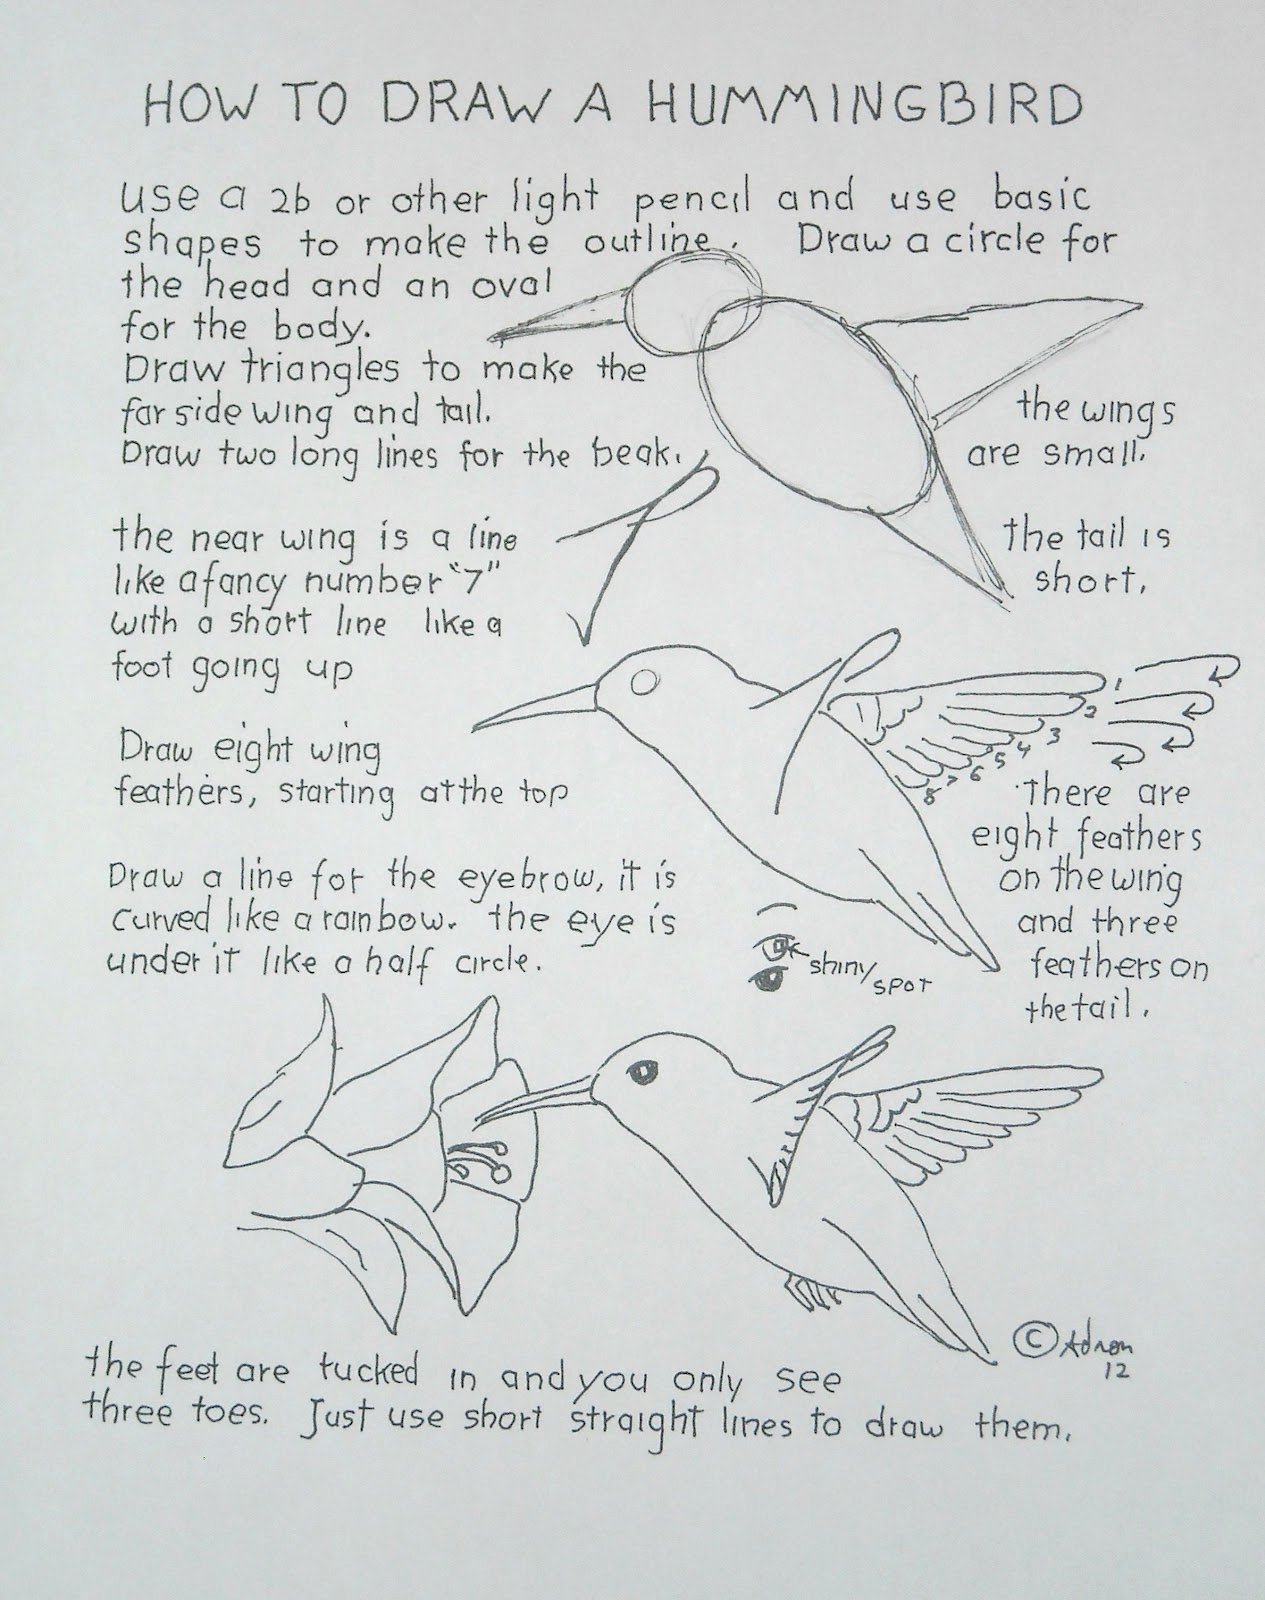 HOW TO DRAW A HUMMINGBIRD
use a 2b or other light pencil and use basic
shapes to make the outline. Draw a circle for
the head and an oval
for the body.
Draw triangles to make the
far side wing and tail.
Draw two long lines for the beak.
the wings
are small.
the tail is
short.
the near wing is a line
like a fancy number "7"
with a short line like a
foot going up
Draw eight wing
feathers, starting at the top
1
2
3
4
5
6
7
8
There are
eight feathers
on the wing
and three
feathers on
the tail.
Draw a line for the eyebrow, it is
curved like a rainbow. the eye is
under it like a half circle.
shiny
spot
© Adron
12
the feet are tucked in and you only see
three toes. Just use short straight lines to draw them.